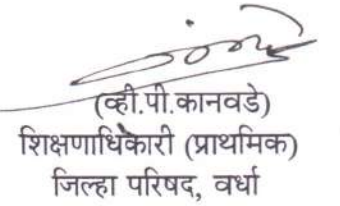 (व्ही.पी.कानवडे)
शिक्षणाधिकारी (प्राथमिक)
जिल्हा परिषद, वर्धा